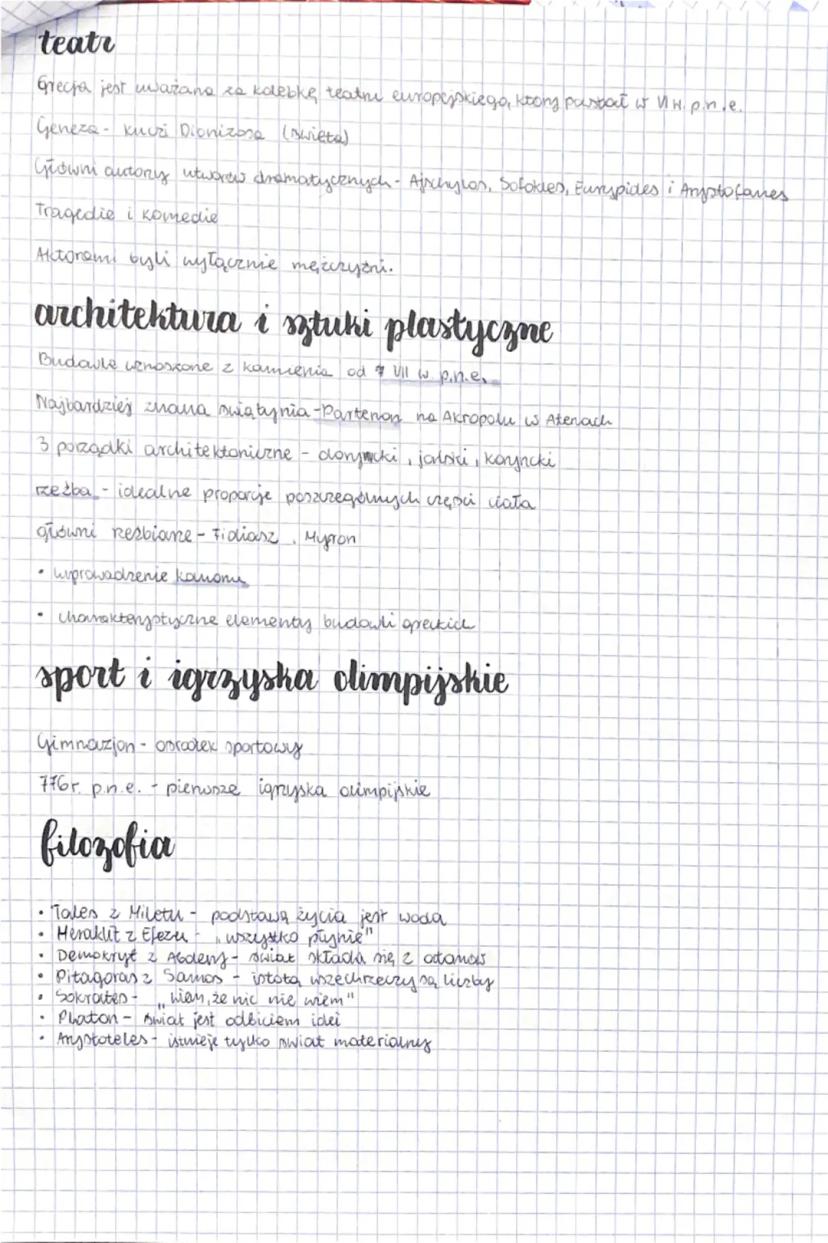 teatr
Grecja jest uważana za kolebkę teatru europejskiego, który powstał w VI w. p.n.e.
Geneza - kulci Dionizosa (święta)
Główni autorzy utworów dramatycznych - Ajschylos, Sofokles, Eurypides i Arystofanes
Tragedie i komedie
Aktorami byli wyłącznie mężczyźni.
architektura i sztuki plastyczne
Budowle wznoszone z kamienia od VII w p.n.e.
Najbardziej znana świątynia - Partenon na Akropolu w Atenach
3 porządki architektoniczne - dorycki, joński, koryncki
rzeźba - idealne proporcje poszczególnych części ciała
główni rzeźbiarze - Fidiasz, Myron
• wprowadzenie kanonu
• charakterystyczne elementy budowli greckich
sport i igrzyska olimpijskie
Gimnazjon - ośrodek sportowy
776r. p.n.e. - pierwsze igrzyska olimpijskie
filozofia
• Tales z Miletu - podstawą życia jest woda
• Heraklit z Efezu - „wszystko płynie"
• Demokryt z Abdery - świat składa się z atomów
• Pitagoras z Samos - istotą wszechrzeczy są liczby
• Sokrates - „wiem, że nic nie wiem"
• Platon - świat jest odbiciem idei
• Arystoteles - istnieje tylko świat materialny